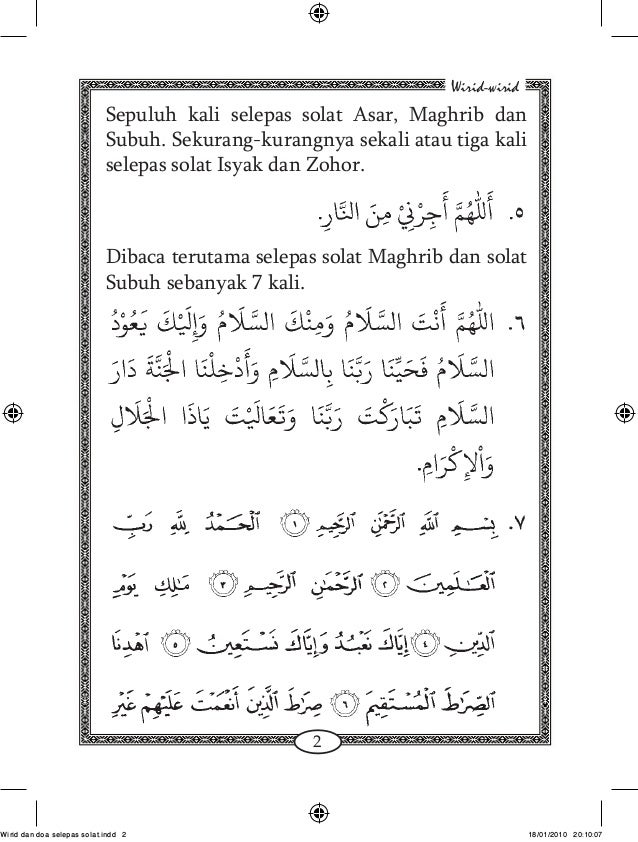 Wirid-wirid
Sepuluh kali selepas solat Asar, Maghrib dan
Subuh. Sekurang-kurangnya sekali atau tiga kali
selepas solat Isyak dan Zohor.
٥. أَللّٰهُمَّ أَجِرْنِيْ مِنَ النَّارِ.
Dibaca terutama selepas solat Maghrib dan solat
Subuh sebanyak 7 kali.
٦. اللّٰهُمَّ أَنْتَ السَّلَامُ وَمِنْكَ السَّلَامُ وَإِلَيْكَ يَعُوْدُ
السَّلَامُ فَحَيِّنَا رَبَّنَا بِالسَّلَامِ وَأَدْخِلْنَا الْجَنَّةَ دَارَ
السَّلَامِ تَبَارَكْتَ رَبَّنَا وَتَعَالَيْتَ يَاذَا الْجَلَالِ
وَاْلإِكْرَامِ.
٧. بِسْمِ ٱللَّهِ ٱلرَّحْمَٰنِ ٱلرَّحِيمِ ١ ٱلْحَمْدُ لِلَّهِ رَبِّ
ٱلْعَٰلَمِينَ ٢ ٱلرَّحْمَٰنِ ٱلرَّحِيمِ ٣ مَٰلِكِ يَوْمِ
ٱلدِّينِ ٤ إِيَّاكَ نَعْبُدُ وَإِيَّاكَ نَسْتَعِينُ ٥ ٱهْدِنَا
ٱلصِّرَٰطَ ٱلْمُسْتَقِيمَ ٦ صِرَٰطَ ٱلَّذِينَ أَنْعَمْتَ عَلَيْهِمْ غَيْرِ
2
Wirid dan doa selepas solat.indd 2
18/01/2010 20:10:07